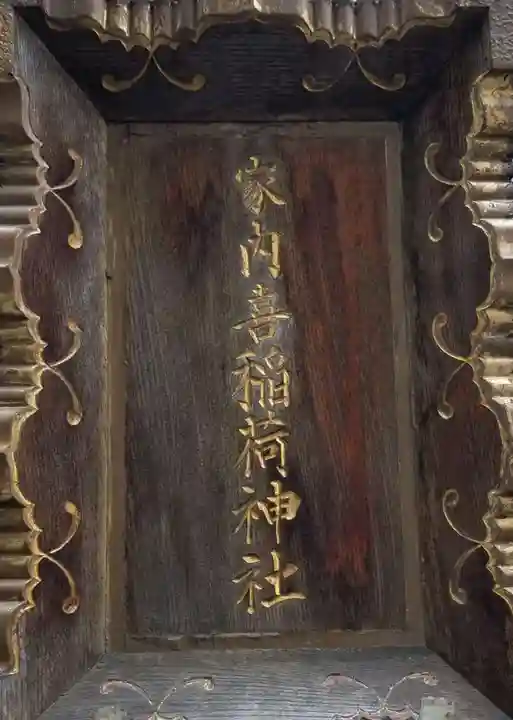 家内喜稲荷神社